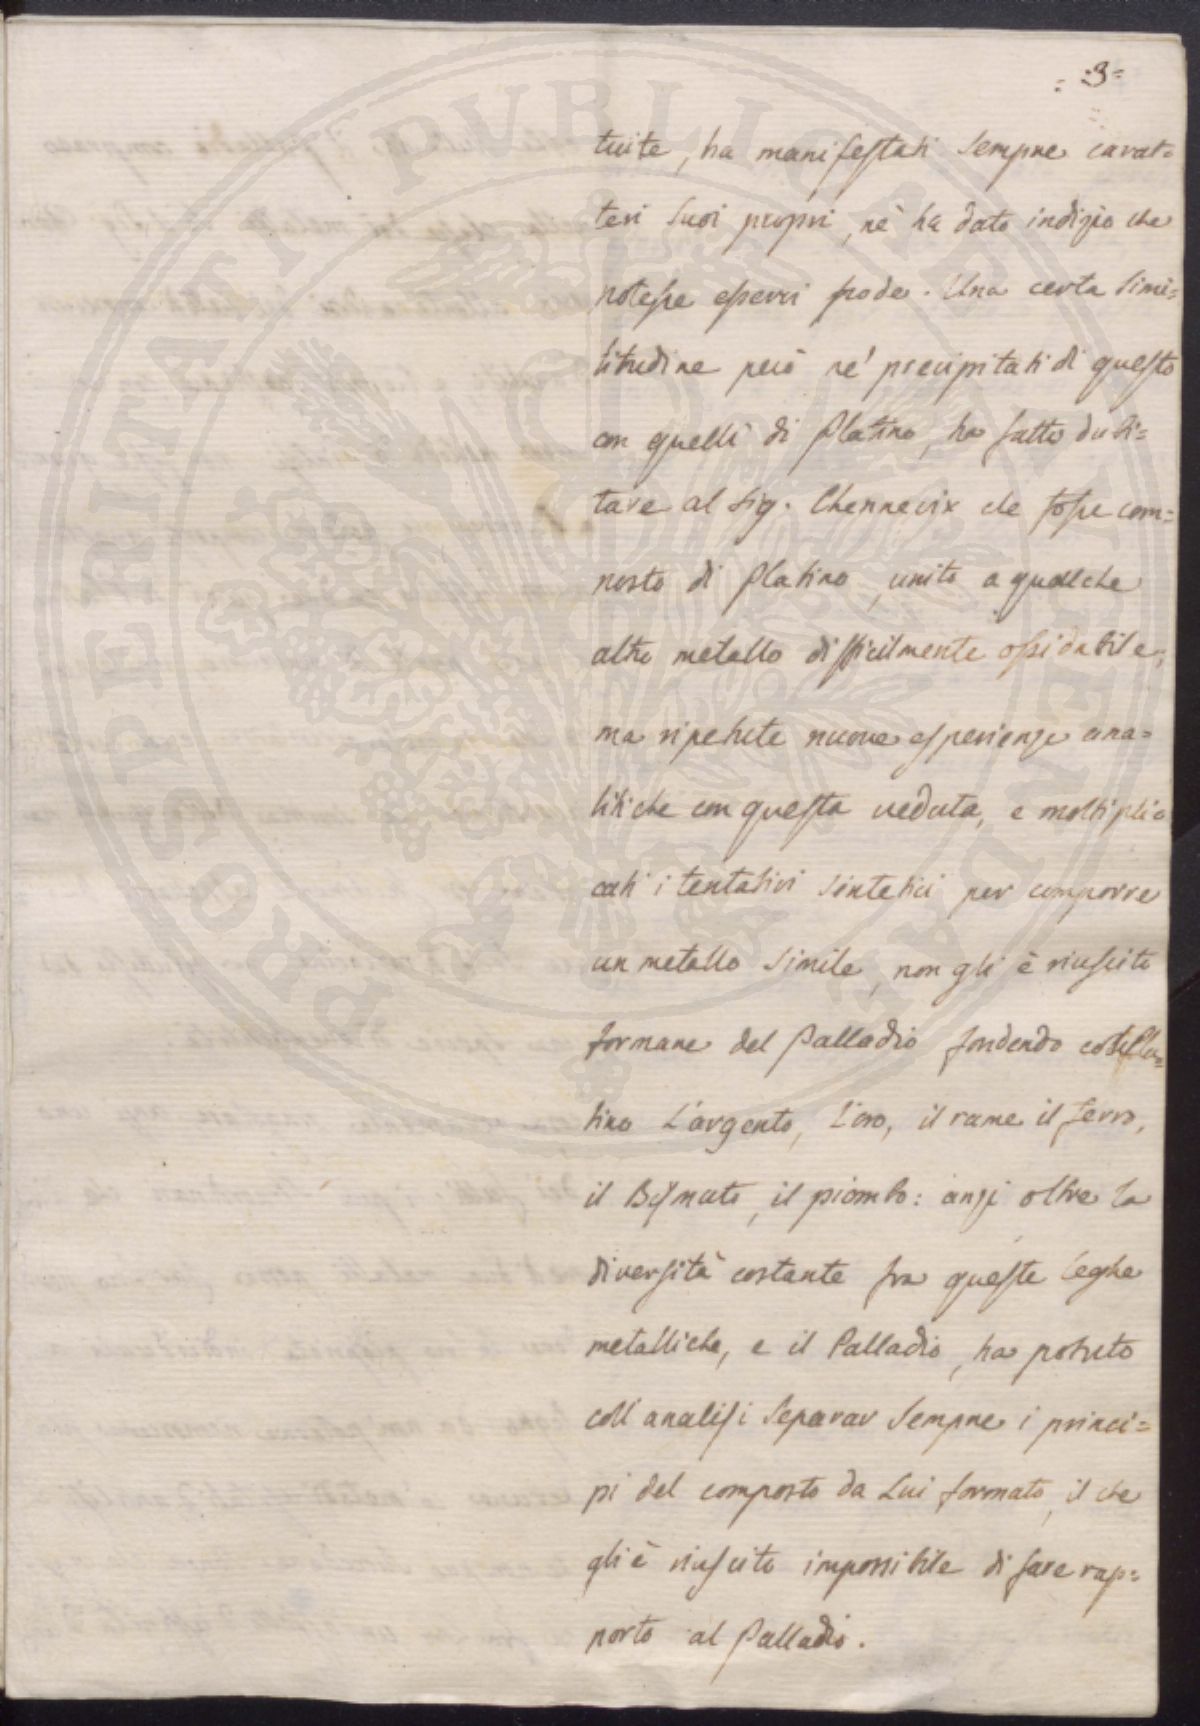 = 3 =
tuite, ha manifestati sempre carat=
teri suoi proprj, nè ha dato indizio che
potesse esservi frode. Una certa simi=
litudine però ne' precipitati di questo
con quelli di Platino, ha fatto dubi=
tare al Sig. Chennevix che fosse com=
posto di Platino, unito a qualche
altro metallo difficilmente ossidabile;
ma ripetute nuove esperienze ana=
litiche con questa veduta, e moltipli=
cati i tentativi sintetici per comporre
un metallo simile, non gli è riuscito
formare del Palladio fondendo col Pla=
tino L'argento, l'oro, il rame il ferro,
il Bismuto, il piombo: anzi oltre la
diversità costante fra queste leghe
metalliche, e il Palladio, ha potuto
coll'analisi separar sempre i princi=
pi del composto da Lui formato, il che
gli è riuscito impossibile di fare rap=
porto al Palladio.
PROSPERITATI PUBLICAE AUGENDAE